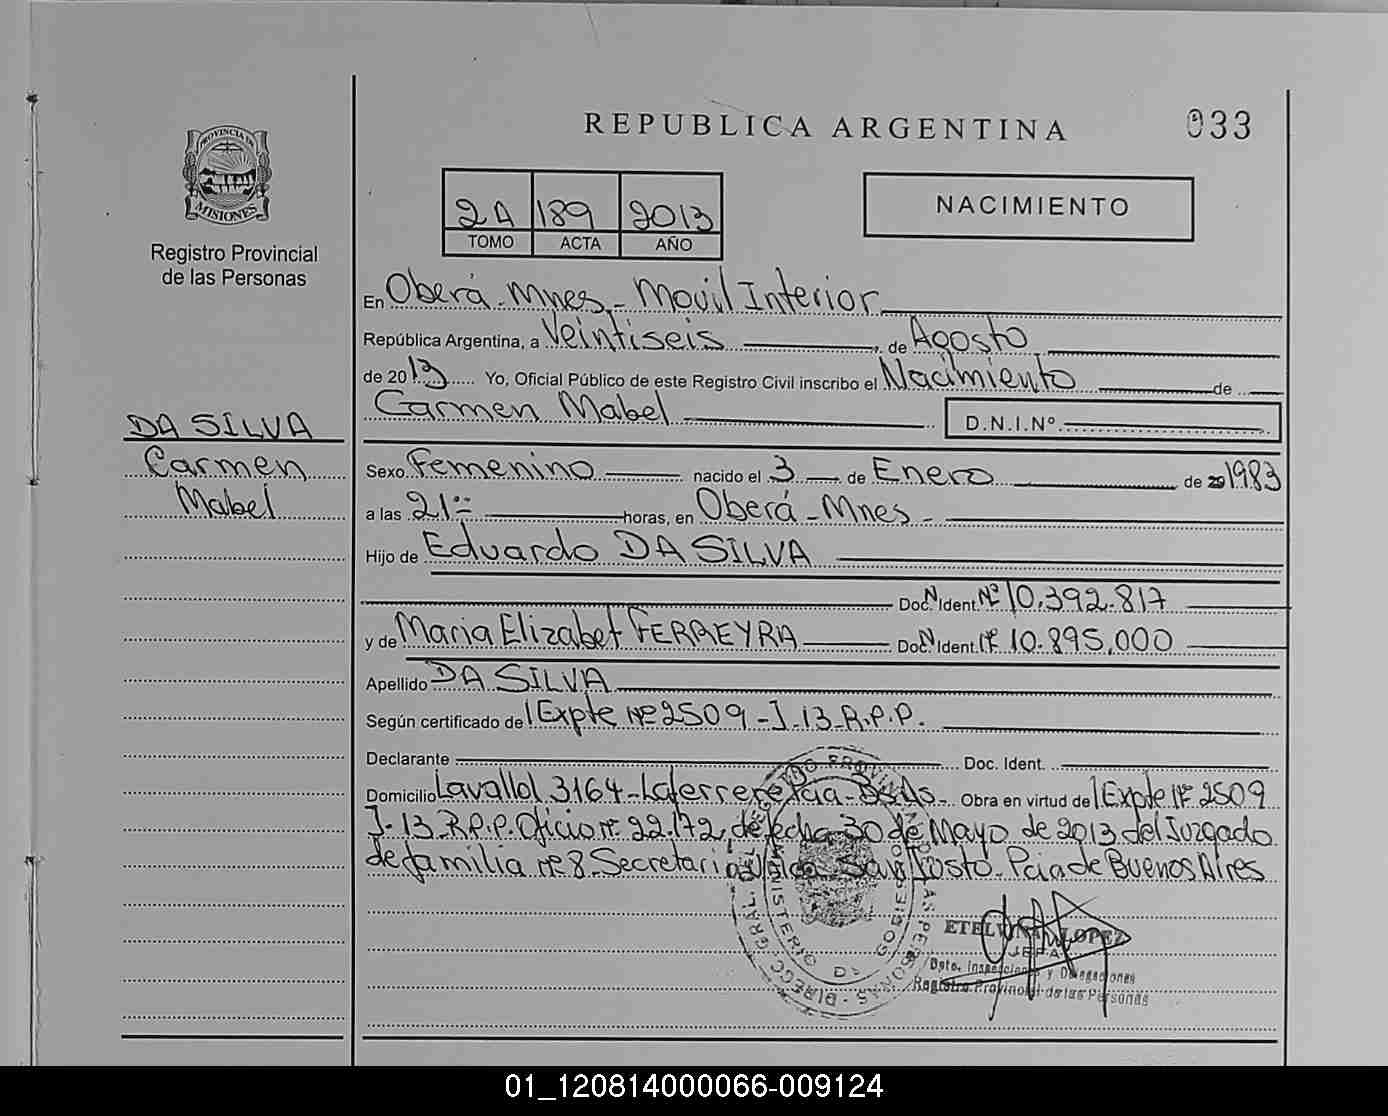 REPUBLICA ARGENTINA
033
PROVINCIA DE
MISIONES
Registro Provincial
de las Personas
2A 189 2013
TOMO ACTA AÑO
NACIMIENTO
En Oberá - Mnes - Movil Interior
República Argentina, a Veintiseis, de Agosto
de 2013 Yo, Oficial Público de este Registro Civil inscribo el Nacimiento de
Carmen Mabel D.N.I.Nº
DA SILVA
Carmen
Mabel
Sexo Femenino nacido el 3 de Enero de 20 1983
a las 21 horas, en Oberá - Mnes -
Hijo de Eduardo DA SILVA
Doc. N. Ident. Nº 10.392.817
y de Maria Elizabet FERREYRA Doc. N. Ident. Nº 10.895.000
Apellido DA SILVA
Según certificado de Expte Nº 2509 - J - 13 - R.P.P.
Declarante Doc. Ident.
Domicilio Lavallol 3164 - Laferrere Pcia - Bs As - Obra en virtud de Expte Nº 2509
J - 13 - R.P.P. Oficio nº 22.172, de fecha 30 de Mayo de 2013 del Juzgado
de familia nº 8 - Secretaria San Justo - Pcia de Buenos Aires
LOPEZ
JEFA
Dpto. Inspecciones y Delegaciones
Registro Provincial de las Personas
01_120814000066-009124